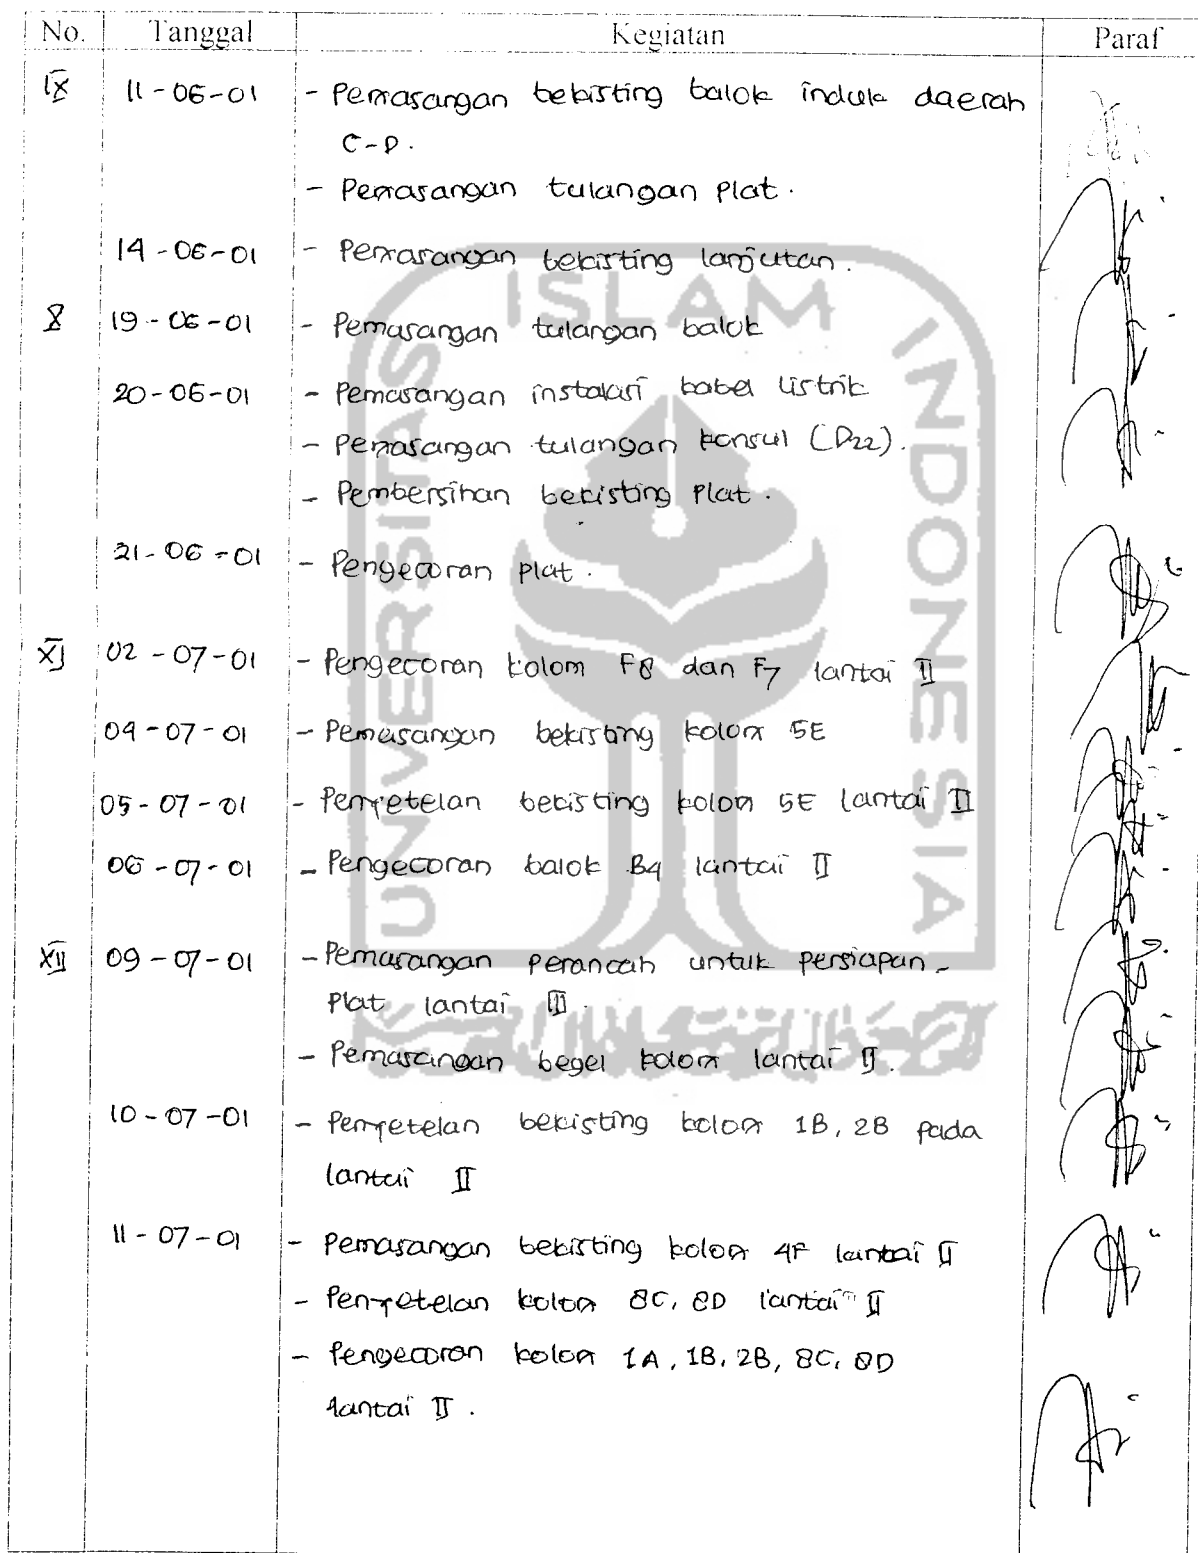 No. Tanggal Kegiatan Paraf
IX 11-06-01 - Pemasangan bekisting balok induk daerah
C-D.
- Pemasangan tulangan Plat.
14-06-01 - Pemasangan bekisting lanjutan.
X 19-06-01 - Pemasangan tulangan balok
20-06-01 - Pemasangan instalasi kabel listrik
- Pemasangan tulangan konsul (D22).
- Pembersihan bekisting Plat.
21-06-01 - Pengecoran plat.
XI 02-07-01 - Pengecoran kolom F8 dan F7 lantai II
04-07-01 - Pemasangan bekisting kolom 5E
05-07-01 - Penyetelan bekisting kolom 5E lantai II
06-07-01 - Pengecoran balok B4 lantai II
XII 09-07-01 - Pemasangan perancah untuk persiapan
Plat lantai III.
- Pemasangan begel kolom lantai II.
10-07-01 - Penyetelan bekisting kolom 1B, 2B pada
lantai II
11-07-01 - Pemasangan bekisting kolom 4F lantai II
- Penyetelan kolom 8C, 8D lantai II
- Pengecoran kolom 1A, 1B, 2B, 8C, 8D
lantai II.
UNIVERSITAS ISLAM INDONESIA